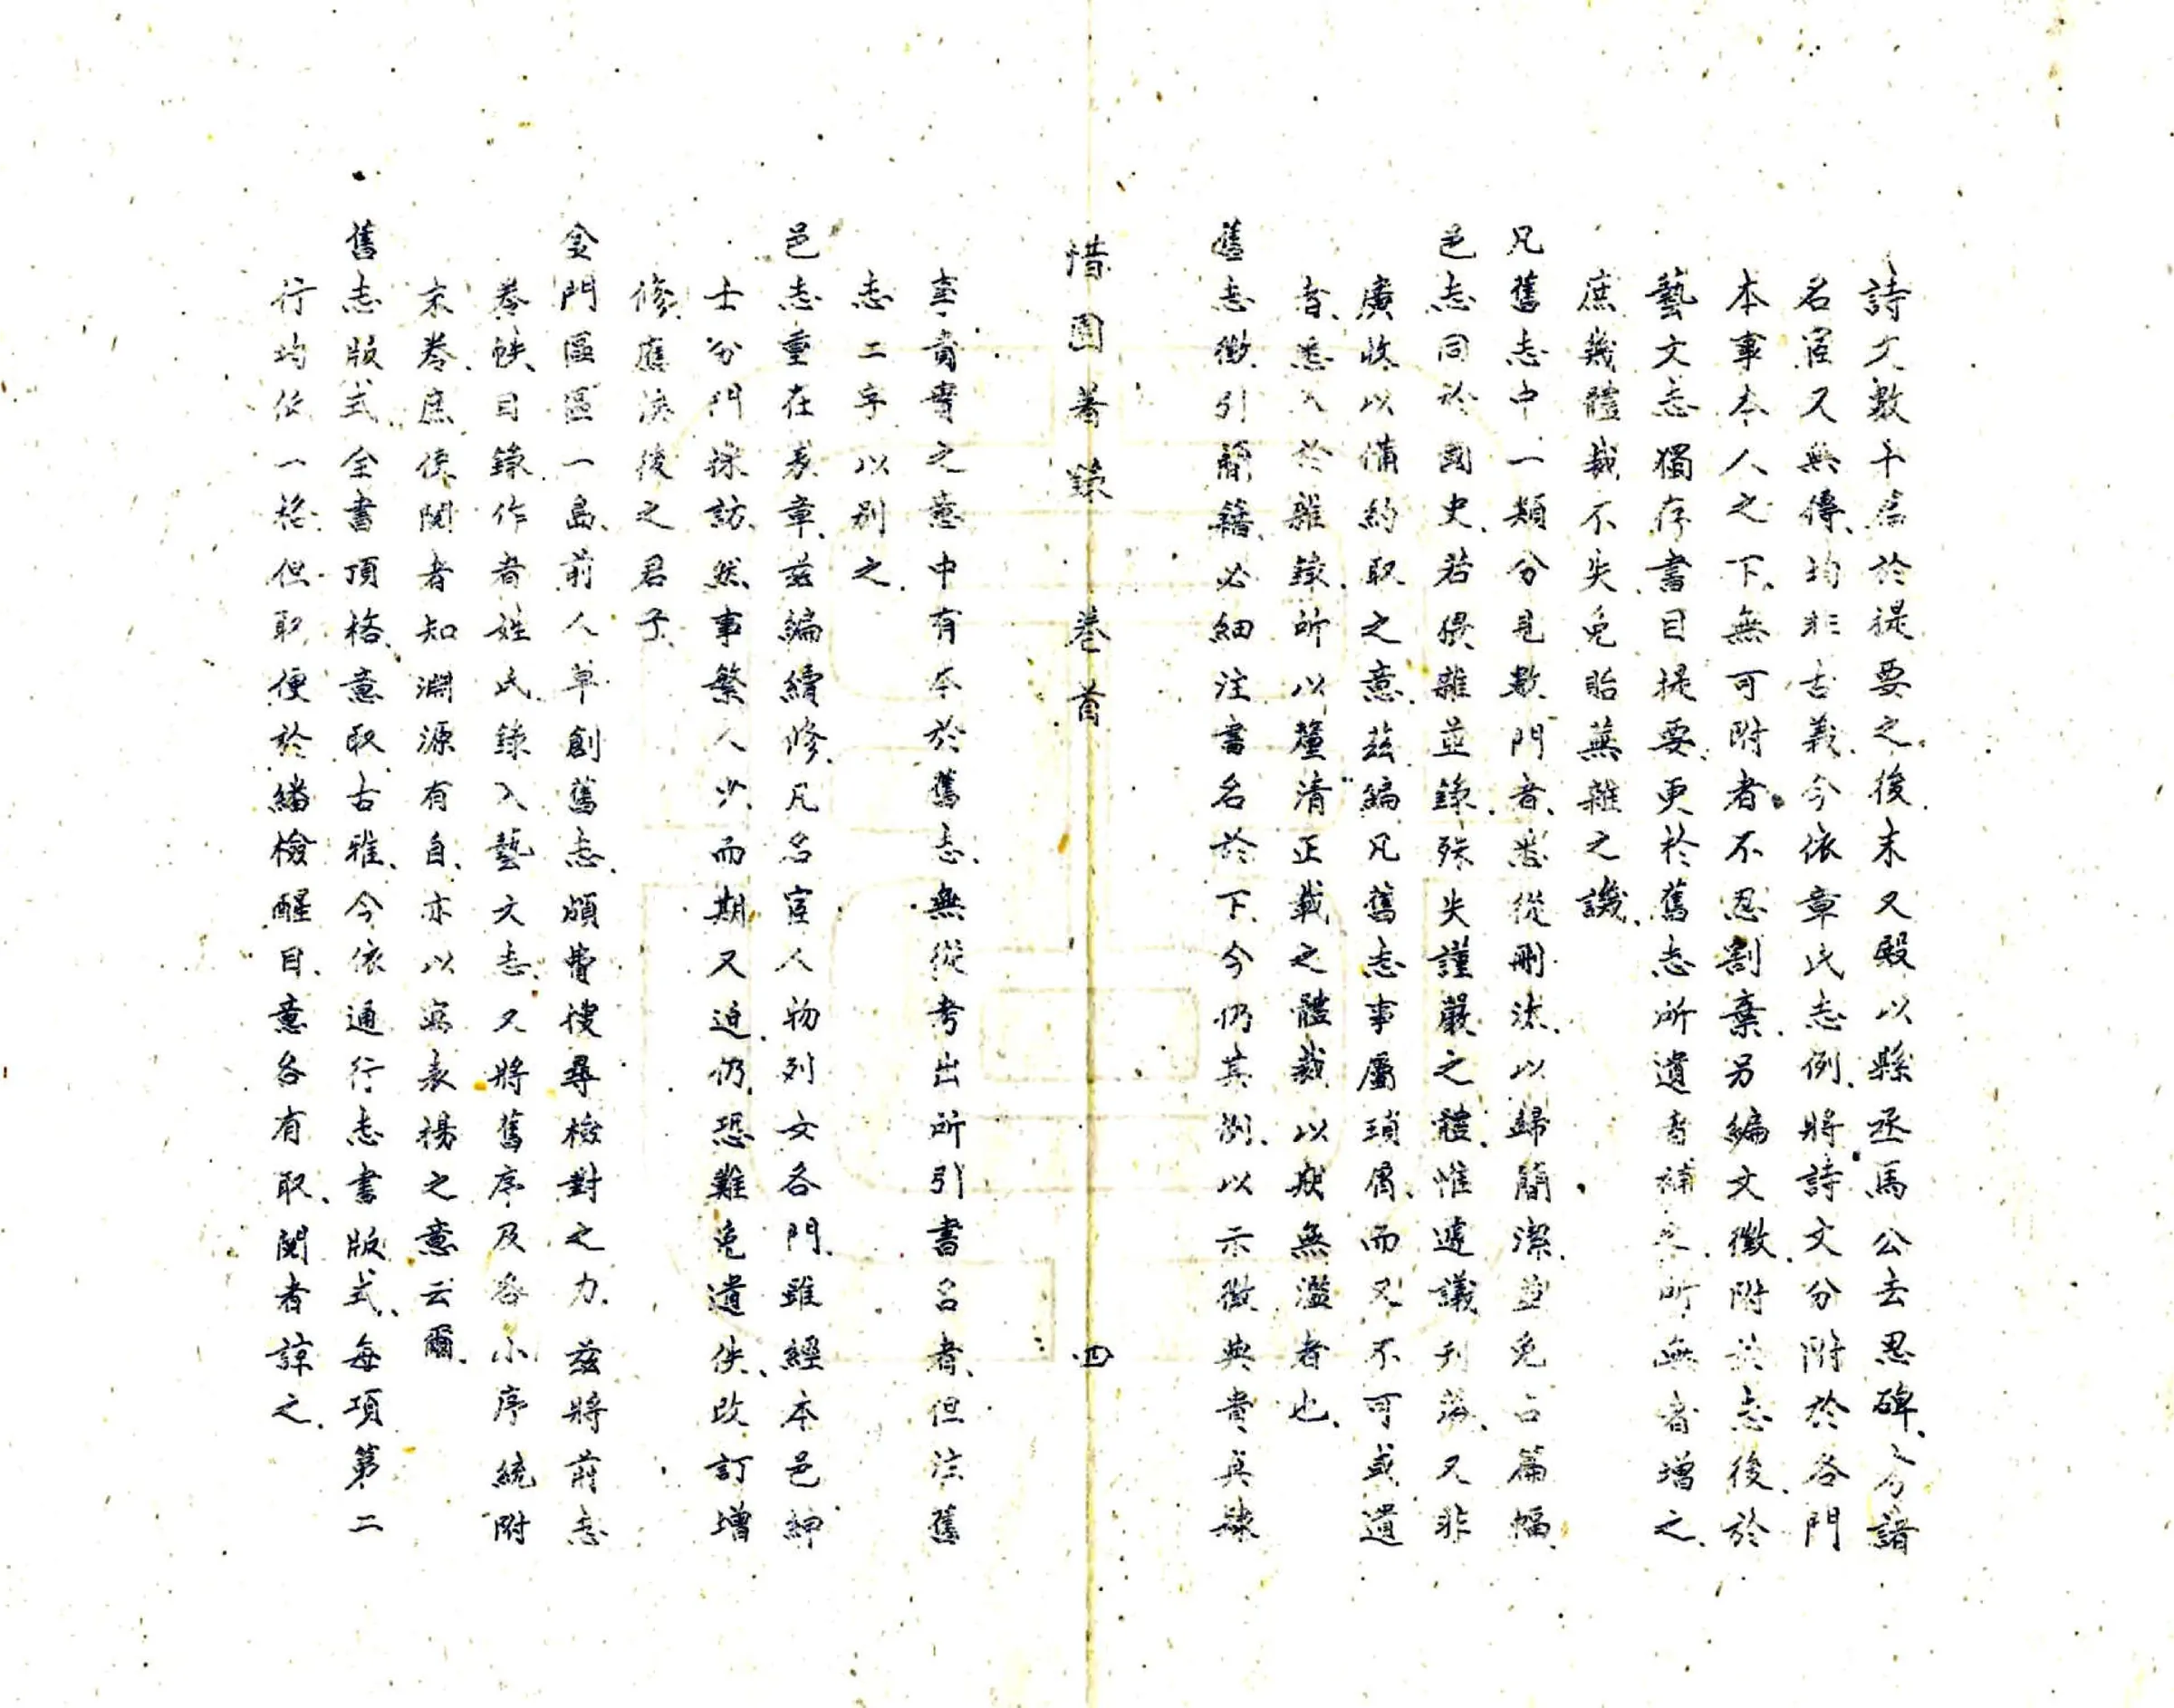 詩文數千居於提要之後、末又殿以縣丞馬公去思碑、之分諸
名宦又無傳、均非古義、今依章氏志例、將詩文分附於各門
本事本人之下、無可附者、不忍割棄、另編文徵、附於志後、於
藝文志獨存書目提要、更於舊志所遺者補之、所無者增之、
庶幾體裁不失、免貽蕪雜之譏、
凡舊志中一類分見數門者、悉從刪汰、以歸簡潔、並免占篇幅、
邑志同於國史、若猥雜並錄、殊失謹嚴之體、惟遽議刊落、又非
廣收以備約取之意、茲編凡舊志事屬瑣屑、而又不可或遺
者、悉入於雜錄、所以釐清正載之體裁、以求無濫者也、
舊志徵引簡籍、必細注書名於下、今仍其例、以示徵典貴真棣
惜園著錄　卷首　四
事貴實之意、中有本於舊志、無從考出所引書名者、但注舊
志二字以別之、
邑志重在表章、茲編續修、凡名宦人物列女各門、雖經本邑紳
士分門採訪、然事繁人少、而期又迫、仍恐難免遺佚、改訂增
修、應俟後之君子、
金門區區一島、前人草創舊志、頗費搜尋檢對之力、茲將前志
卷帙目錄、作者姓氏、錄入藝文志、又將舊序及各小序統附
末卷、庶使閱者知淵源有自、亦以寓表揚之意云爾、
舊志版式、全書頂格、意取古雅、今依通行志書版式、每項第二
行均低一格、但取便於繙檢醒目、意各有取、閱者諒之、